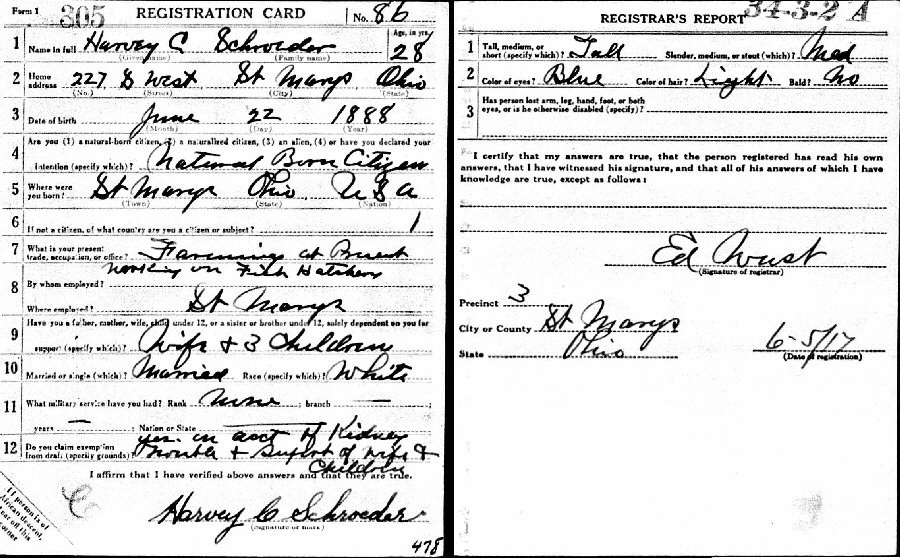 Form 1 305 REGISTRATION CARD No. 86
1 Name in full Harvey C Schroeder Age, in yrs. 28
(Given name) (Family name)
2 Home address 227 S West St Marys Ohio
(No.) (Street) (City) (State)
3 Date of birth June 22 1888
(Month) (Day) (Year)
4 Are you (1) a natural-born citizen, (2) a naturalized citizen, (3) an alien, (4) or have you declared your
intention (specify which)? Natural Born Citizen
5 Where were you born? St Marys Ohio USA
(Town) (State) (Nation)
6 If not a citizen, of what country are you a citizen or subject? 1
7 What is your present trade, occupation, or office? Farming at Present
working on Fish Hatchery
8 By whom employed?
Where employed? St Marys
9 Have you a father, mother, wife, child under 12, or a sister or brother under 12, solely dependent on you for
support (specify which)? Wife + 3 Children
10 Married or single (which)? Married Race (specify which)? White
11 What military service have you had? Rank None ; branch — ;
years — ; Nation or State
12 Do you claim exemption from draft (specify grounds)? yes. on acct of Kidney
trouble + Suport of wife +
Children
I affirm that I have verified above answers and that they are true.
Harvey C Schroeder
(Signature or mark)
If person is of
African descent,
tear off this
corner
478
REGISTRAR'S REPORT 34-3-2 A
1 Tall, medium, or short (specify which)? Tall Slender, medium, or stout (which)? Med
2 Color of eyes? Blue Color of hair? Light Bald? No
3 Has person lost arm, leg, hand, foot, or both
eyes, or is he otherwise disabled (specify)?
I certify that my answers are true, that the person registered has read his own
answers, that I have witnessed his signature, and that all of his answers of which I have
knowledge are true, except as follows:
Ed Wust
(Signature of registrar)
Precinct 3
City or County St Marys
State Ohio 6-5/17
(Date of registration)